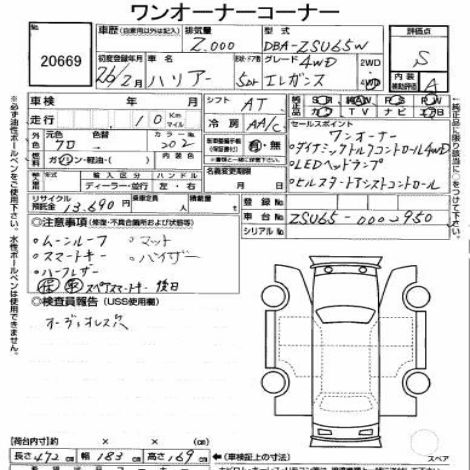 ワンオーナーコーナー
20669
車歴 (自家用以外は記入) 排気量 型式 評価点
2.000 DBA-ZSU65W S
初度登録年月 車名 ドア・形状 グレード 4WD 2WD 内装
26/2月 ハリアー 5DR エレガンス 4WD 補助評価 A
車検 年 月 シフト AT 純正品 SR AW PS PW
走行 10 Km マイル 冷房 AA/C カワ TV ナビ エアB
外色 元色 カラーNo. 内装色 セールスポイント
クロ 202 ワンオーナー
燃料 ガソリン・軽油・( ) 有・無 ・ダイナミックトルクコントロール4WD
輸入車 年式 輸入区分 ハンドル 名義変更期限 ・LEDヘッドランプ
ディーラー・並行 左・右 月 日 ・ヒルスタートアシストコントロール
リサイクル 13.690円 乗車定員 人 積載量 登録No.
○注意事項 (修復・不具合箇所および状態等) 車台No. ZSU65-0002950
シリアルNo.
・ムーンルーフ ・マット
・スマートキー ・バイザー
・ハーフレザー
保 取 スペアスマートキー 後日
○検査員報告 (USS使用欄)
オーディオレス穴
【荷台内寸】 × ×
長さ 472 cm 幅 183 cm 高さ 169 cm ←(車検証上の寸法) スペア
※必ず油性ボールペンをご使用下さい。水性ボールペンは